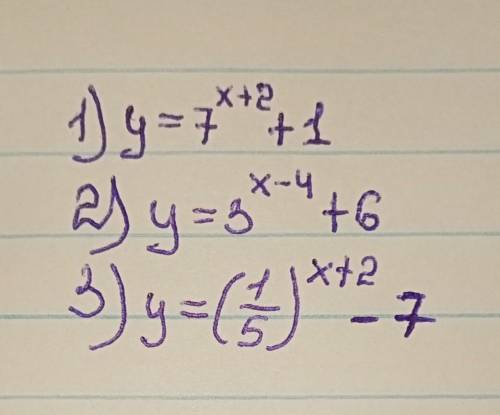 1) y = 7^(x+2) + 1
2) y = 3^(x-4) + 6
3) y = (1/5)^(x+2) - 7